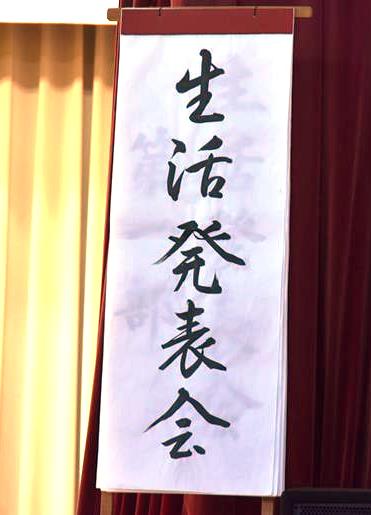 生活発表会